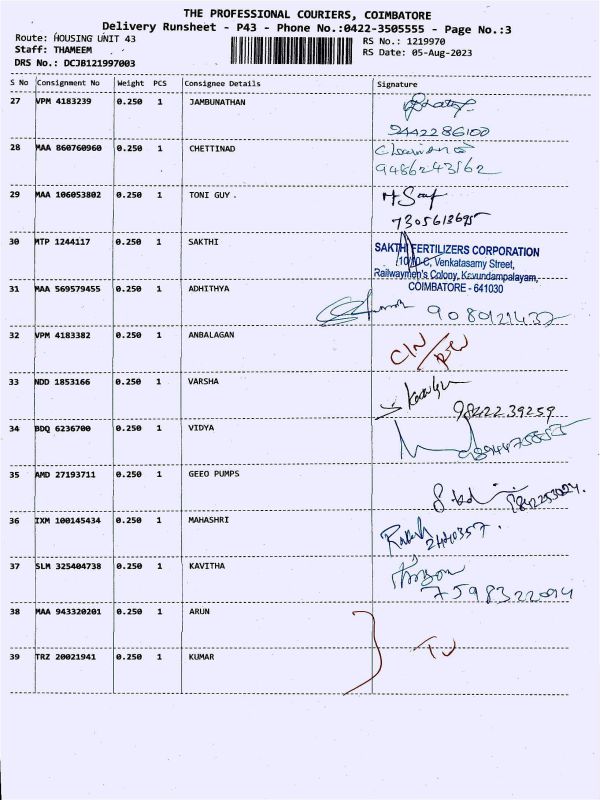 THE PROFESSIONAL COURIERS, COIMBATORE
Delivery Runsheet - P43 - Phone No.:0422-3505555 - Page No.:3
Route: HOUSING UNIT 43 RS No.: 1219970
Staff: THAMEEM RS Date: 05-Aug-2023
DRS No.: DCJB121997003
S No Consignment No Weight PCS Consignee Details Signature
27 VPM 4183239 0.250 1 JAMBUNATHAN
9442286100
28 MAA 860760960 0.250 1 CHETTINAD
9486243162
29 MAA 106053802 0.250 1 TONI GUY.
7305613695
30 MTP 1244117 0.250 1 SAKTHI
SAKTHI FERTILIZERS CORPORATION
Venkatasamy Street,
Railwaymen's Colony, Kavundampalayam,
COIMBATORE - 641030
31 MAA 569579455 0.250 1 ADHITHYA
9080121437
32 VPM 4183382 0.250 1 ANBALAGAN
33 NDD 1853166 0.250 1 VARSHA
9842239259
34 BDQ 6236700 0.250 1 VIDYA
35 AMD 27193711 0.250 1 GEEO PUMPS
36 IXM 100145434 0.250 1 MAHASHRI
2440357.
37 SLM 325404738 0.250 1 KAVITHA
7598322014
38 MAA 943320201 0.250 1 ARUN
39 TRZ 20021941 0.250 1 KUMAR